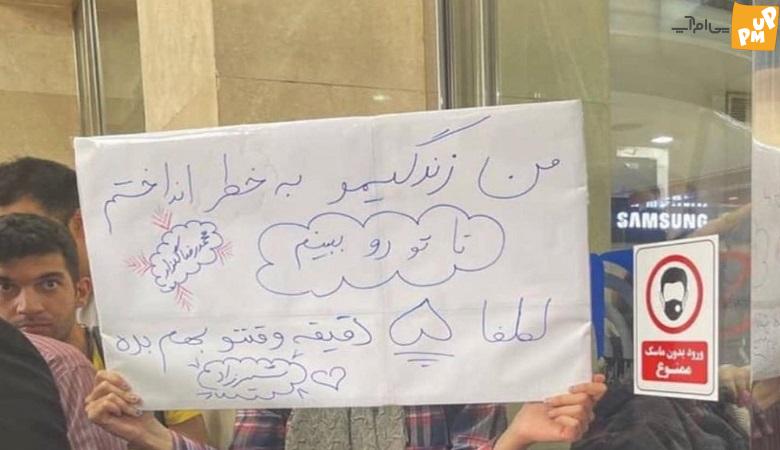 پی‌ام‌آپ
PMUP
SAMSUNG
من زندگیمو به خطر انداختم
تا تو رو ببینم
محمدرضا گلزار
لطفا ۵ دقیقه وقتتو بهم بده
ورود بدون ماسک
ممنوع